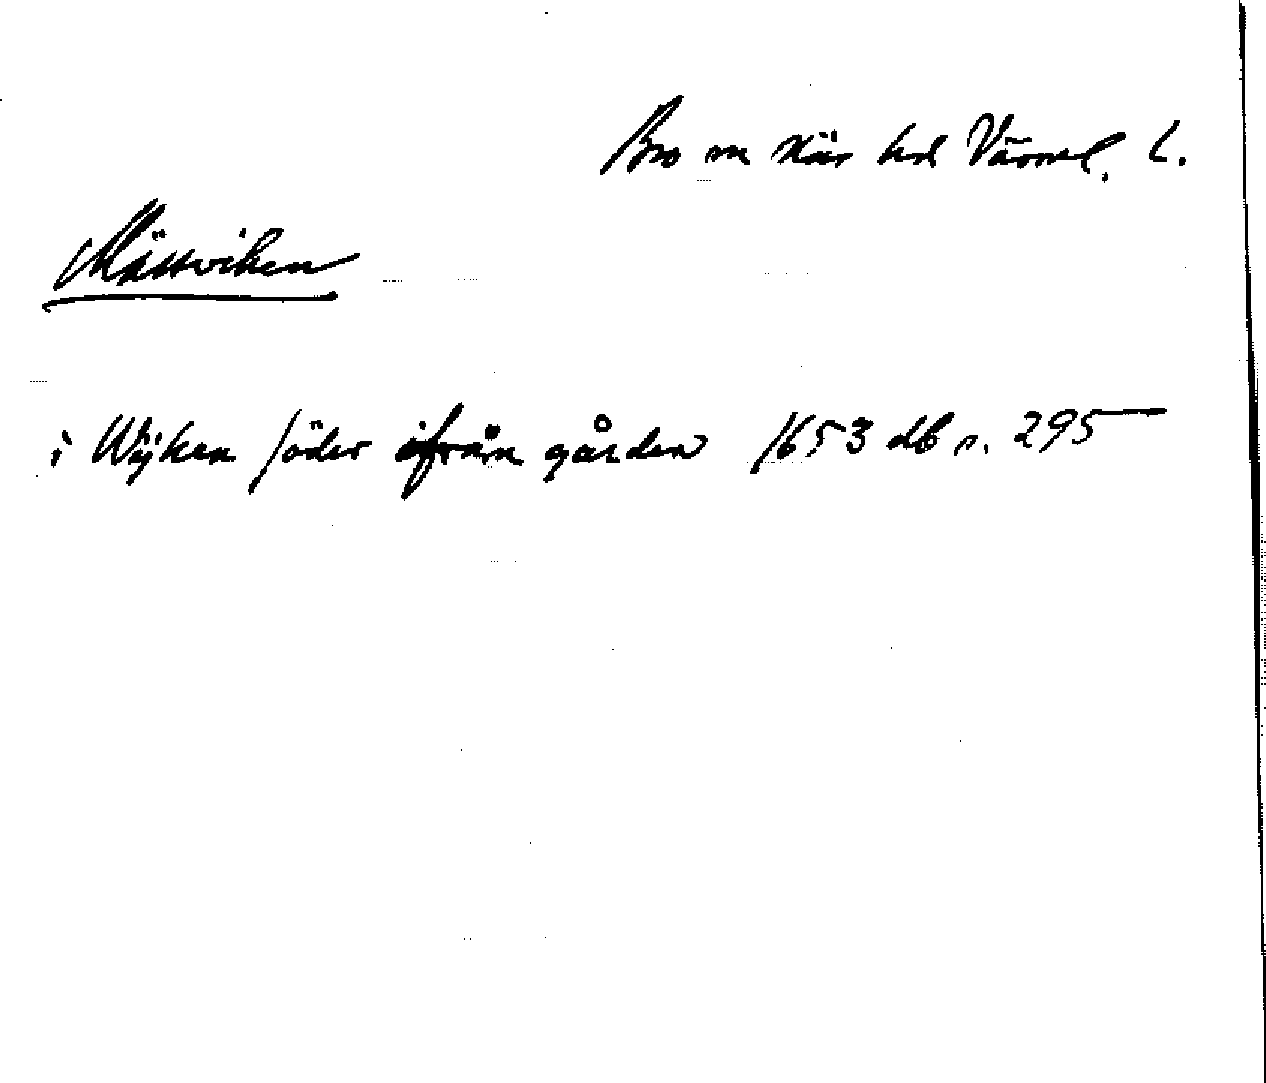 Bro sn Näs hd Värml. l.
Mässviken
i Wijken söder ifrån gården 1653 db s. 295